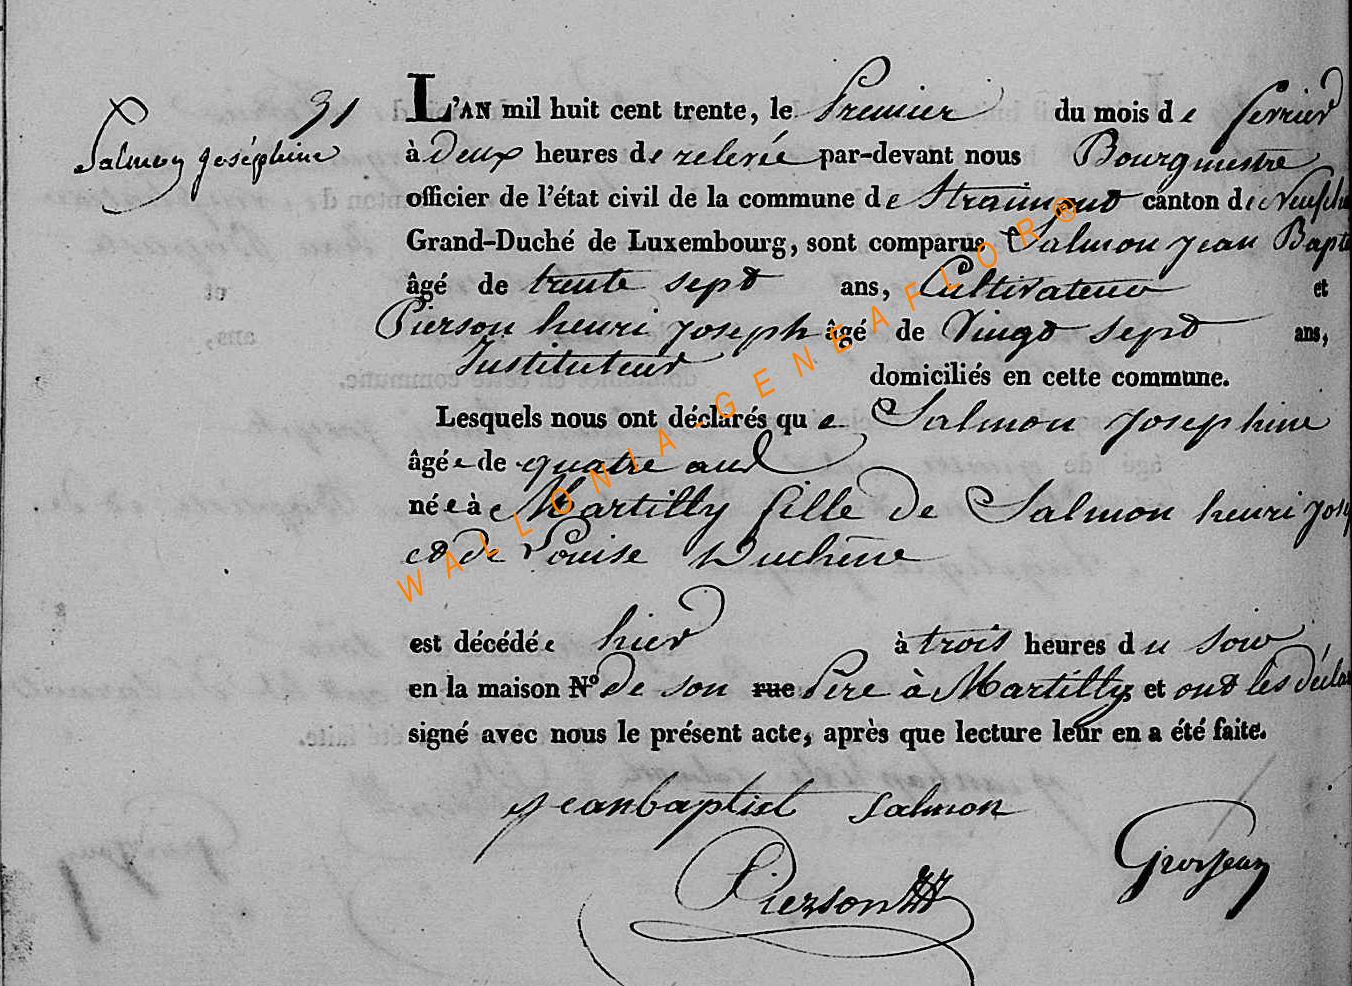 31
Salmon Joséphine
L'AN mil huit cent trente, le Premier du mois de fevrier
à Deux heures de relevée par-devant nous Bourgmestre
officier de l'état civil de la commune de Straimont canton de Neufch
Grand-Duché de Luxembourg, sont comparus Salmon Jean Bapt
âgé de trente sept ans, Cultivateur et
Pierson henri Joseph âgé de Vingt sept ans,
Instituteur domiciliés en cette commune.
Lesquels nous ont déclarés que Salmon Josephine
âgée de quatre ans
née à Martilly fille de Salmon henri Jos
et de Louise Duchêne
est décédée hier à trois heures du soir
en la maison N° de son rue Pere à Martilly et ont les décla
signé avec nous le présent acte, après que lecture leur en a été faite.
jeanbaptist salmon
Pierson
Grosjean
WALLONIA-GENEAFLOR®